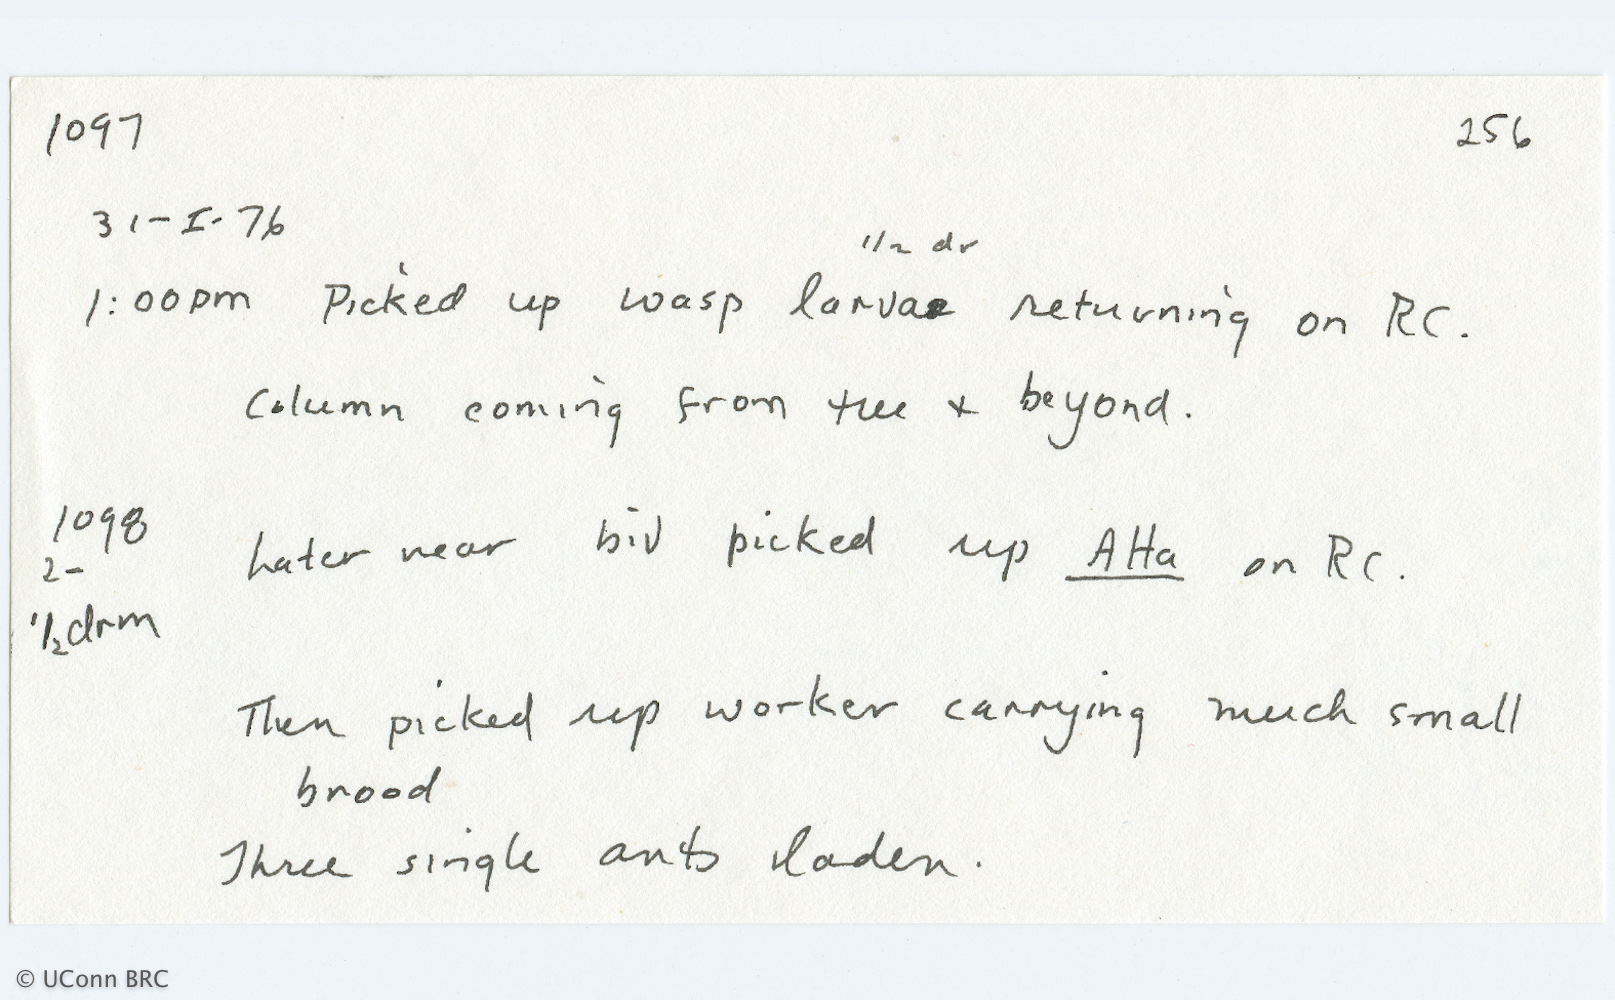 1097 256
31-I-76
1/2 dr
1:00pm Picked up wasp larvae returning on RC.
Column coming from tree + beyond.
1098
2- Later near biv picked up Atta on RC.
1/2 drm
Then picked up worker carrying much small
brood
Three single ants laden.
© UConn BRC